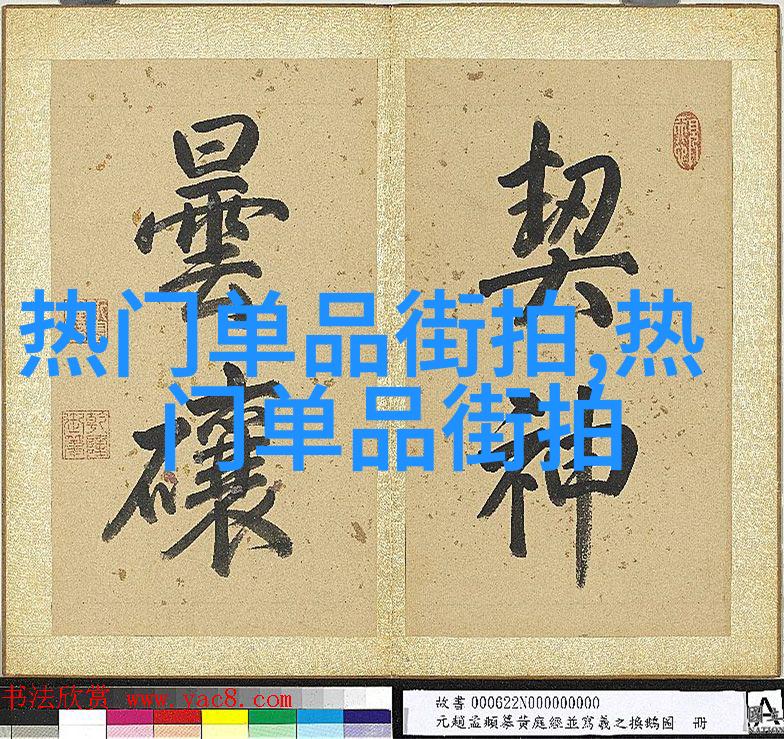 契神
曇
热门单品街拍,热
门单品街拍
书法欣赏 www.yac8.com
故書000622N000000000
元趙孟頫摹黃庭經並寫羲之換鵝圖 冊